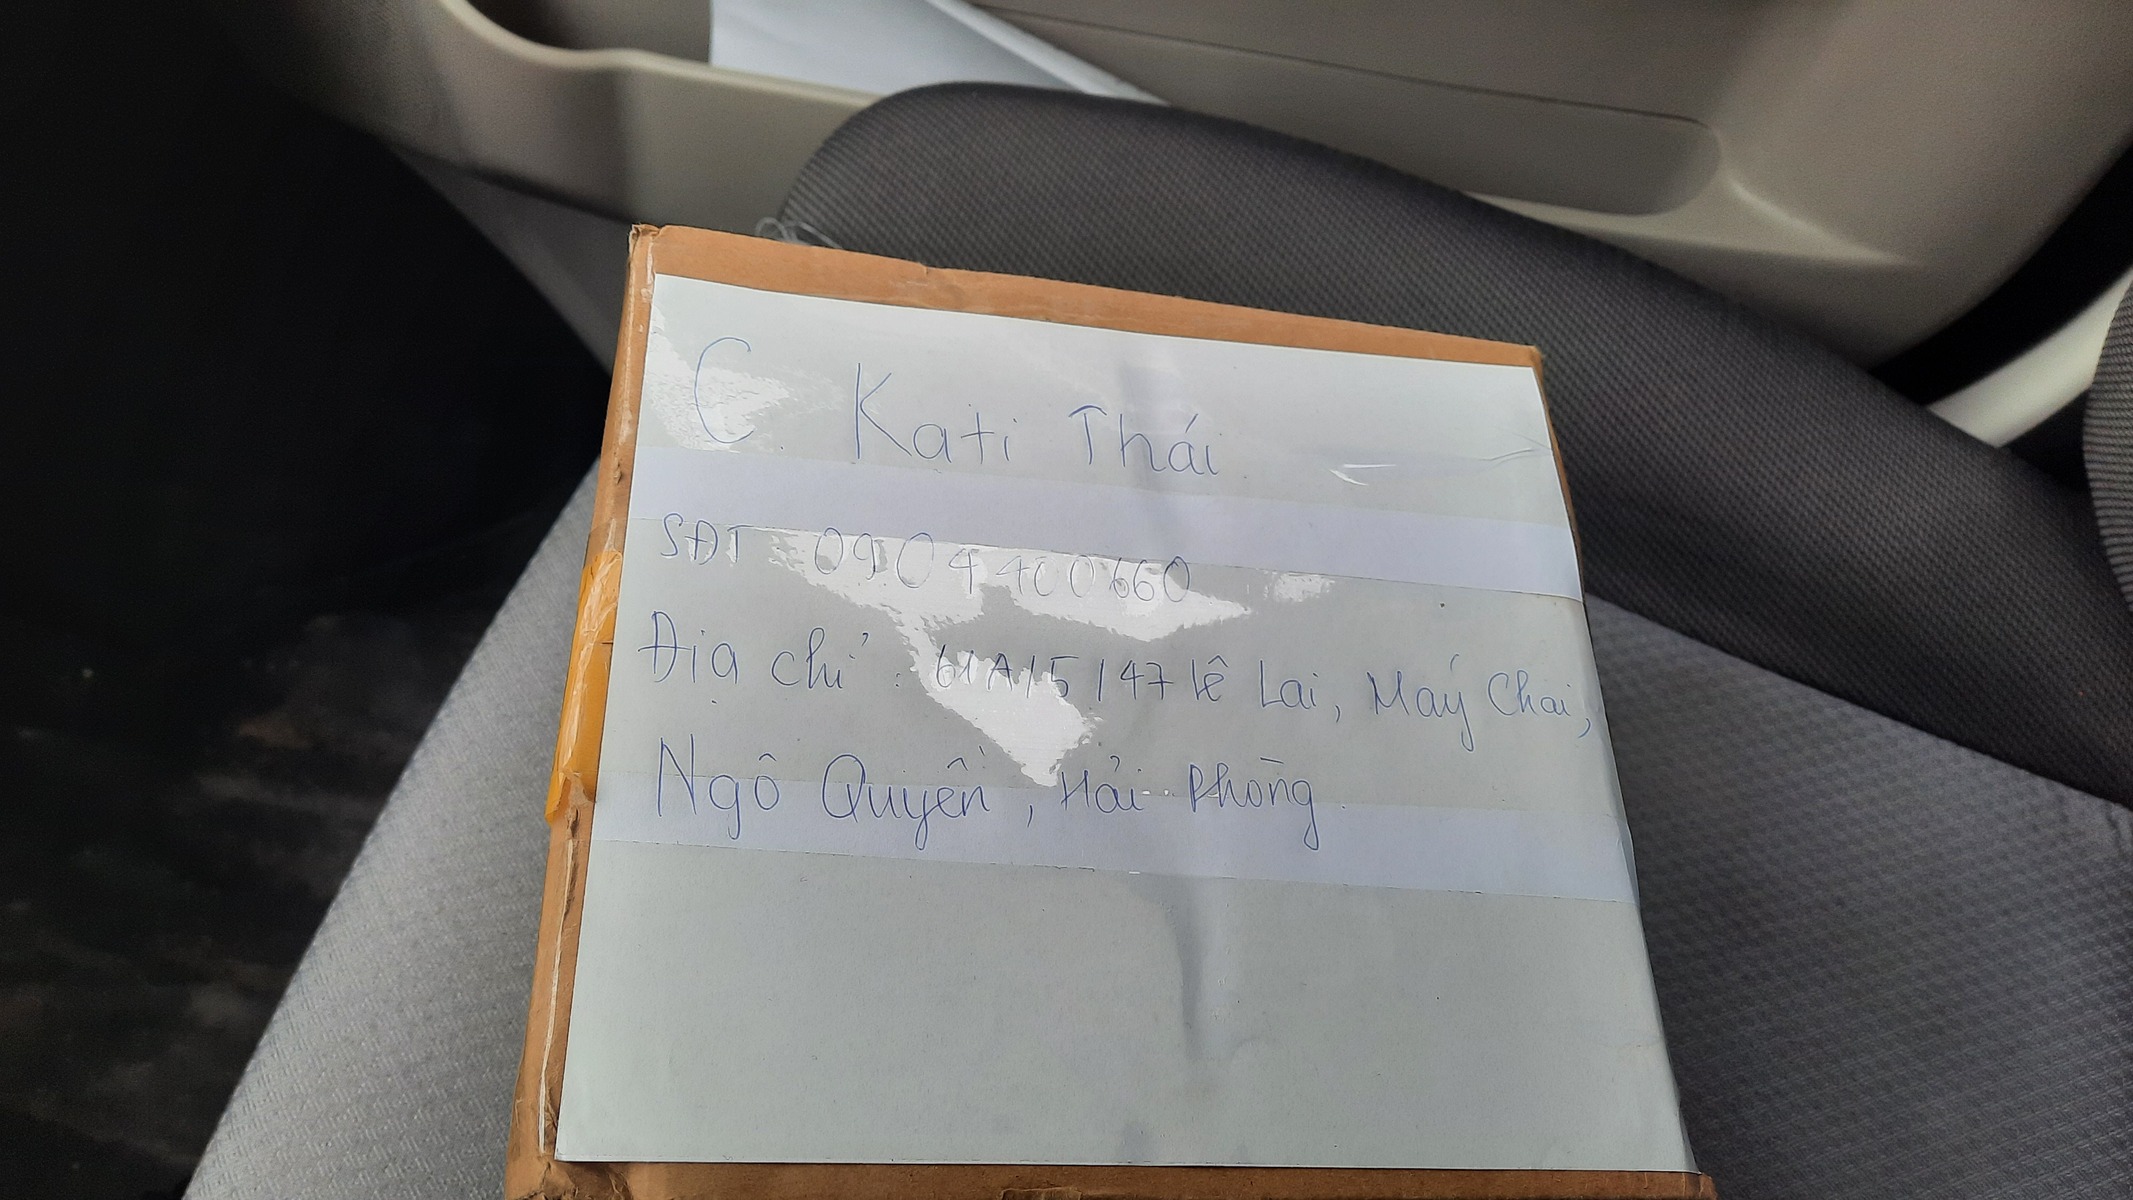 C. Kati Thái
SĐT 0904400660
Địa chỉ : 61A/5/47 Lê Lai, Máy Chai,
Ngô Quyền, Hải Phòng